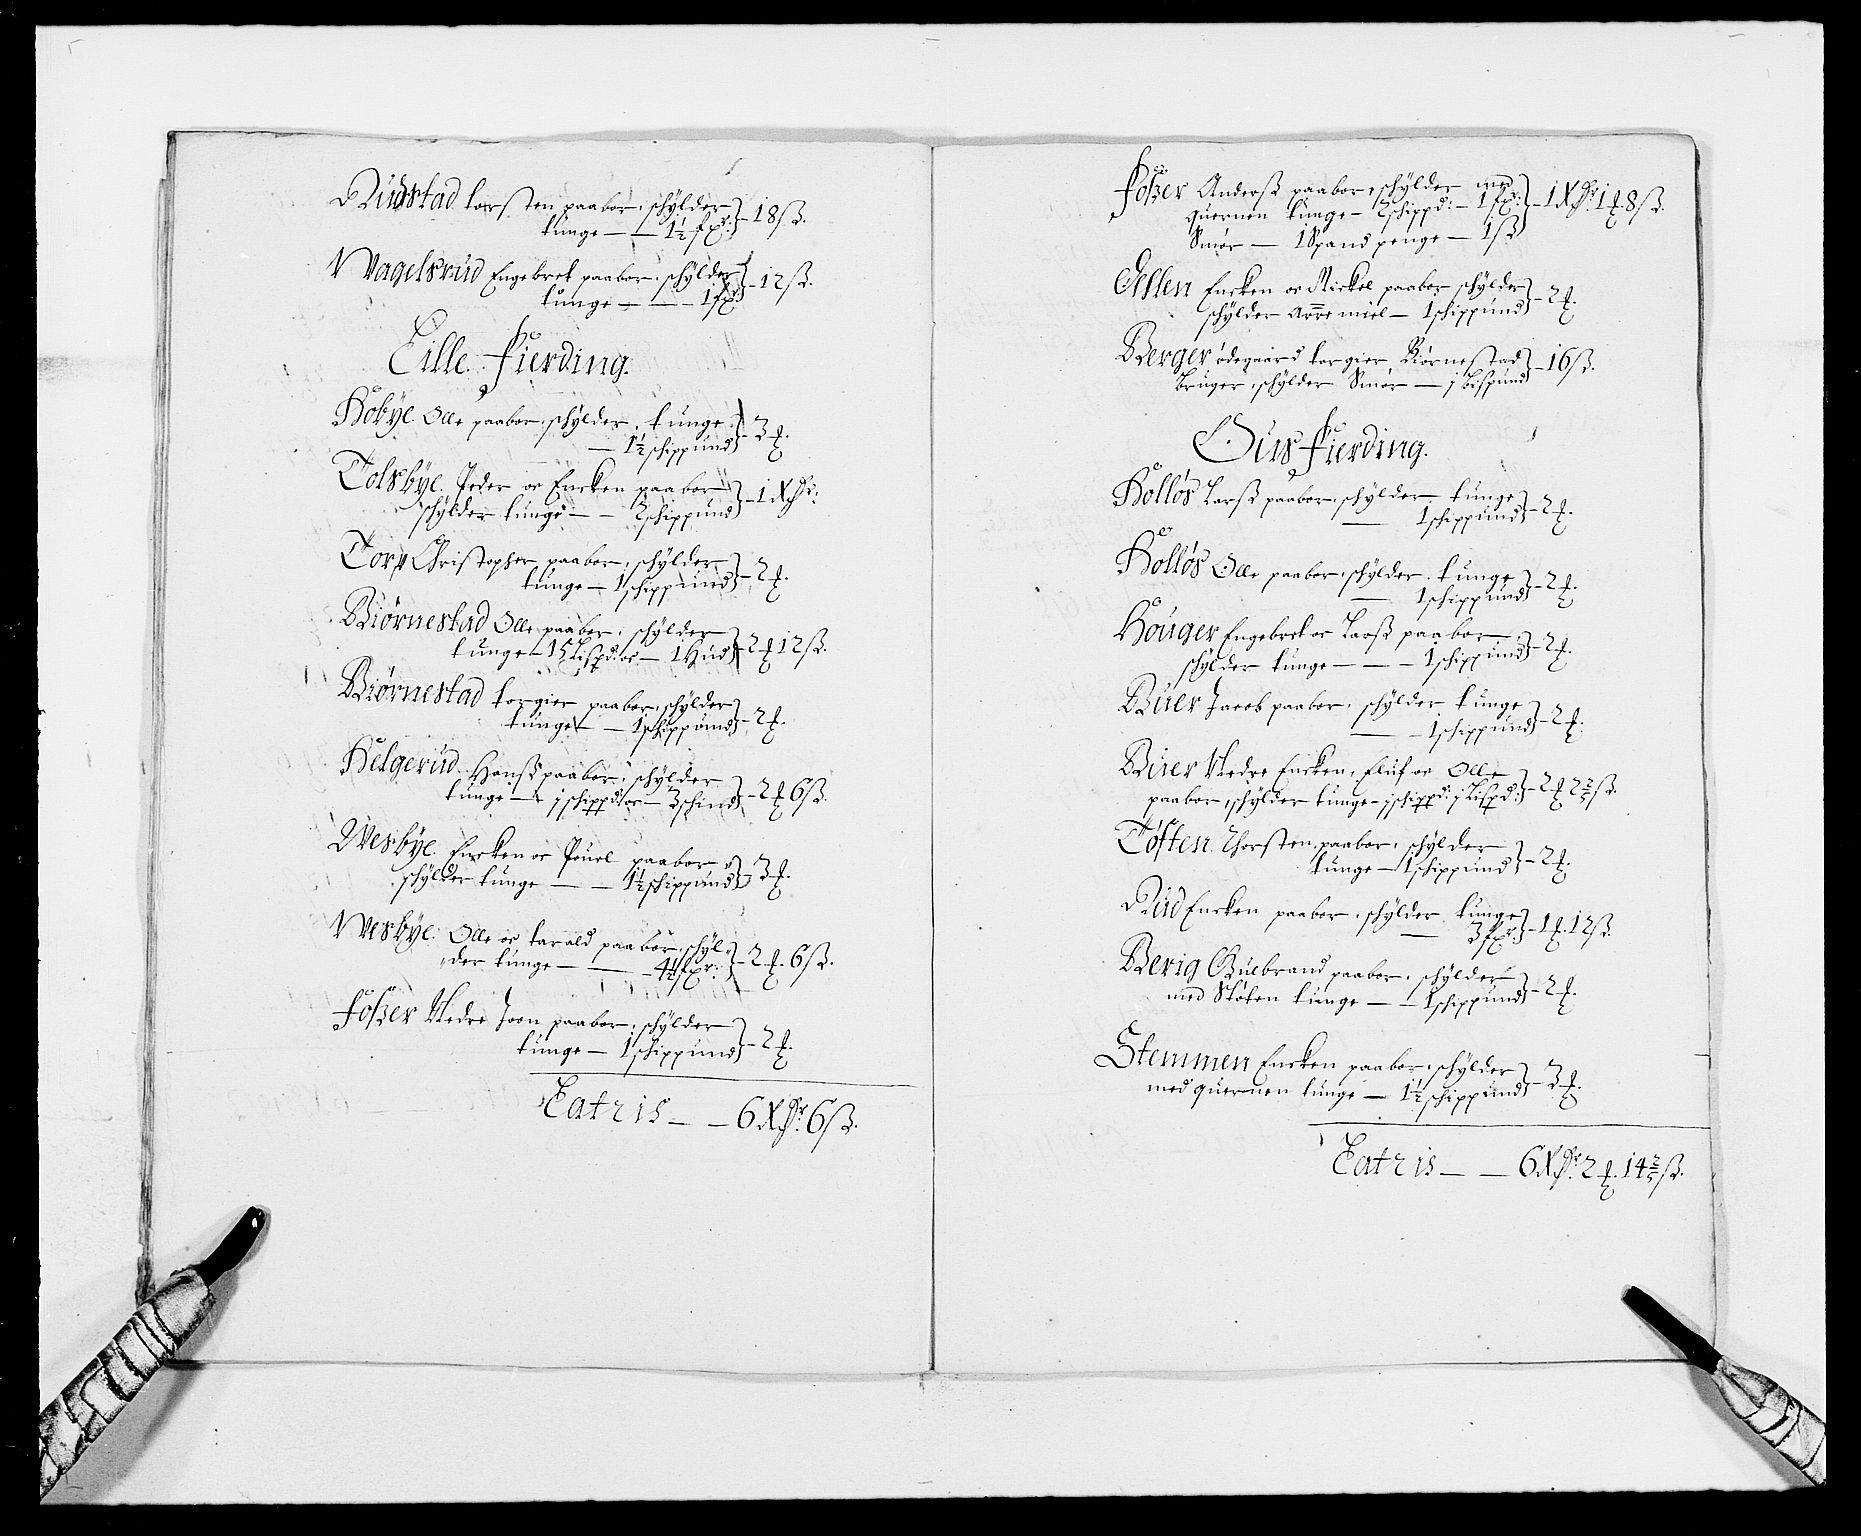 Rudstad torsten paabor, schylder
tunge — — 1½ fxr: } - 18 ß.
Wagelsrud Engebret paabor, schylder
tunge — — — 1 fxr } - 12 ß.
Lille. Fierding.
Kobye. Olle paabor, schylder, tunge
— 1½ schippund } - 3 ꝉ.
Tolsbye. Peder oc Encken paabor
schylder tunge — — 2 schippund } - 1 Rdr:
Torp Christopher paabor, schylder
tunge — 1 schippund } - 2 ꝉ.
Biörnestad Olle paabor, schylder
tunge - 15 Lispd: oc — 1 Hud } - 2 ꝉ 12 ß.
Biörnestad torgier paabor, schylder
tunge — — 1 schippund } - 2 ꝉ.
Helgerud. Hanß paabor, schylder
tunge — j schippd: oc — 3 schind } - 2 ꝉ 6 ß.
Wesbye. Encken oc Pouel paabor
schylder tunge — — 1½ schippund } - 3 ꝉ.
Wesbye. Olle oc tarald paabor, schyl-
der tunge — — - 4½ fxr: } - 2 ꝉ. 6 ß.
Foßer Nedre Joen paabor, schylder
tunge — 1 schippund } - 2 ꝉ.
Latris — — 6 Rdr 6 ß.
Foßer Anderß paabor, schylder med
quernen tunge — 2 schippd: — 1 fxr: } - 1 Rdr: 1 ꝉ 8 ß.
Smör — 1 Spand penge — 1 ß
Encken oc Mickel paabor schylder
schylder miel — 1 schippund } - 2 ꝉ.
Berger ödegaard torgier Biörnestad
bruger, schylder Smör — j bispund } - 16 ß.
Ous Fierding.
Kollös Larß paabor, schylder tunge
— 1 schippund } - 2 ꝉ.
Kollös Olle paabor, schylder tunge
— 1 schippund } - 2 ꝉ.
Houger Engebret oc Larß paabor
schylder tunge — — - 1 schippund } - 2 ꝉ.
Buer Jacob paabor, schylder tunge
— - 1 schippund } - 2 ꝉ.
Buer Nedre Encken, Eluf oc Olle
paabor, schylder tunge - j schippd: j Lispd: } - 2 ꝉ 2⅖ ß.
Töften Thorsten paabor, schylder
tunge — 1 schippund } - 2 ꝉ.
Rud Encken paabor, schylder tunge
— 3 fxr: } - 1 ꝉ. 12 ß.
Berig Gulbrand paabor, schylder
med Stöten tunge — - 1 schippund } - 2 ꝉ.
Stemmen Encken paabor, schylder
med quernen tunge — 1½ schippund } - 3 ꝉ.
Latris — — 6 Rdr: 2 ꝉ. 14⅖ ß.